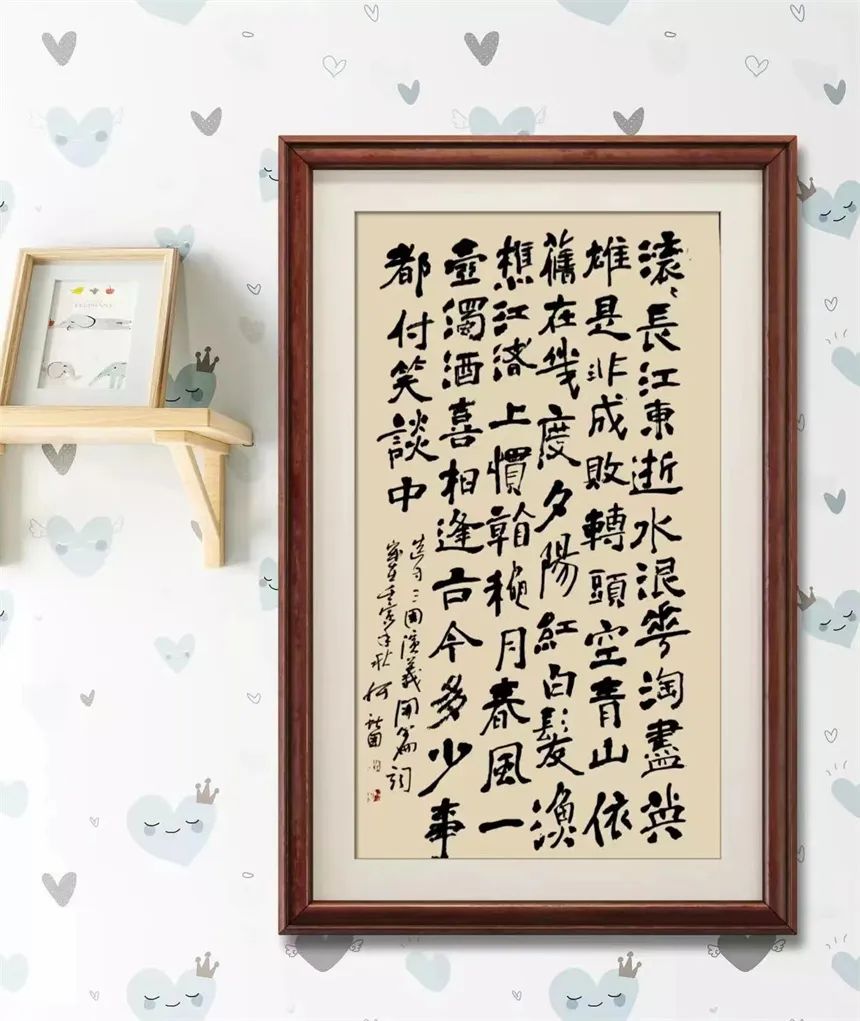 ELEPHANT
滚〻長江東逝水浪花淘盡英
雄是非成敗轉頭空青山依
舊在幾度夕陽紅白髮漁
樵江渚上慣看穐月春風一
壺濁酒喜相逢古今多少事
都付笑談中
选自三国演義開篇詞
歲在壬寅年秋何